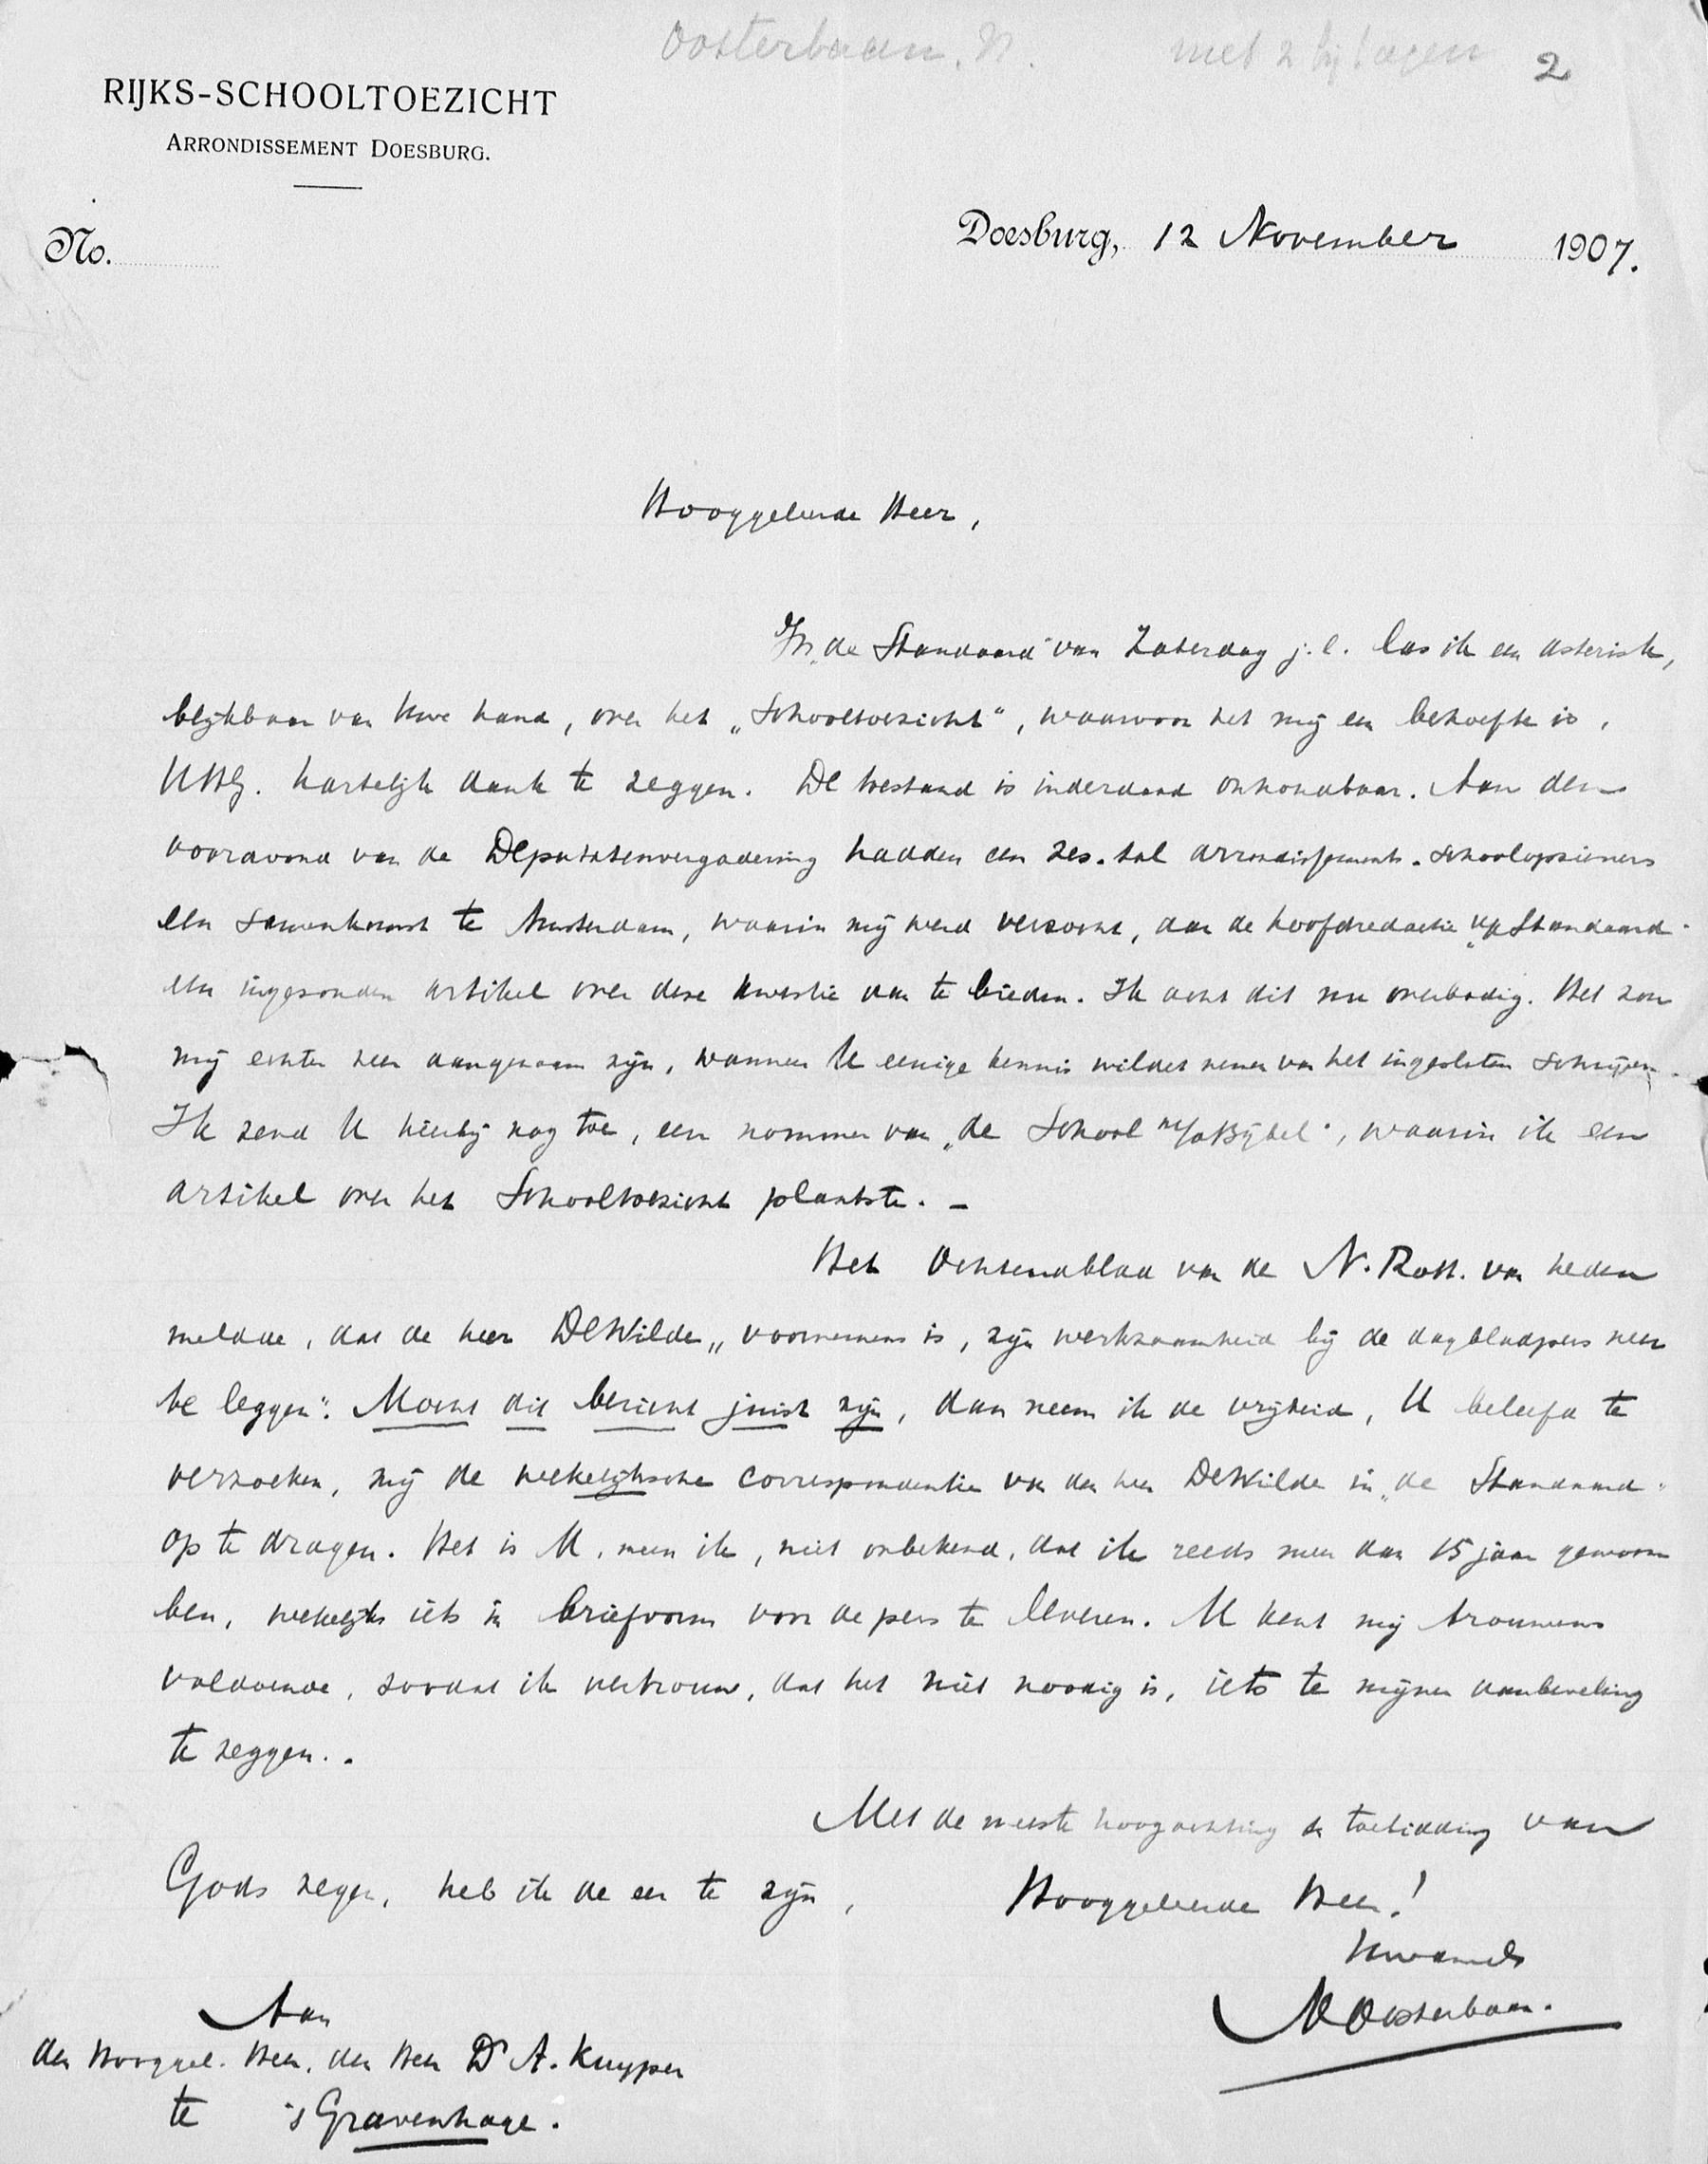 Oosterbaan. N. met 2 bijlagen 2
RIJKS-SCHOOLTOEZICHT
ARRONDISSEMENT DOESBURG.
No.
Doesburg, 12 November 1907.
Hooggeleerde Heer,
In „de Standaard" van Zaterdag j.l. las ik een asterisk,
blijkbaar van Uwe hand, over het „Schooltoezicht", waarvoor het mij een behoefte is,
UHG. hartelijk dank te zeggen. De toestand is inderdaad onhoudbaar. Aan den
vooravond van de Deputatenvergadering hadden een zes-tal arrondissements-schoolopzieners
een samenkomst te Amsterdam, waarin mij werd verzocht, aan de hoofdredactie v/d Standaard
een ingezonden artikel over deze kwestie aan te bieden. Ik acht dit nu overbodig. Het zou
mij echter zeer aangenaam zijn, wanneer U eenige kennis wildet nemen van het ingesloten schrijven.
Ik zend U hierbij nog toe, een nommer van „de School m/d Bijbel", waarin ik een
artikel over het Schooltoezicht plaatste. -
Het Ochtendblad van de N. Rott. van heden
meldde, dat de heer De Wilde „voornemens is, zijn werkzaamheid bij de dagbladpers neer
te leggen". Mocht dit bericht juist zijn, dan neem ik de vrijheid, U beleefd te
verzoeken, mij de wekelijksche correspondentie van den heer De Wilde in „de Standaard"
op te dragen. Het is U, meen ik, niet onbekend, dat ik reeds meer dan 15 jaar gewoon
ben, wekelijks iets in briefvorm voor de pers te leveren. U kent mij trouwens
voldoende, zoodat ik vertrouw, dat het niet noodig is, iets te mijner aanbeveling
te zeggen. .
Met de meeste hoogachting en toebidding van
Gods zegen, heb ik de eer te zijn,
Hooggeleerde Heer!
Uwdw
N Oosterbaan.
Aan
den Hooggel. Heer, den Heer Dr A. Kuyper
te 's Gravenhage.